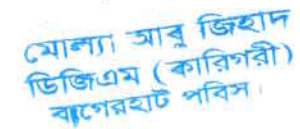 মোল্যা আবু জিহাদ
ডিজিএম (কারিগরী)
বাগেরহাট পবিস।